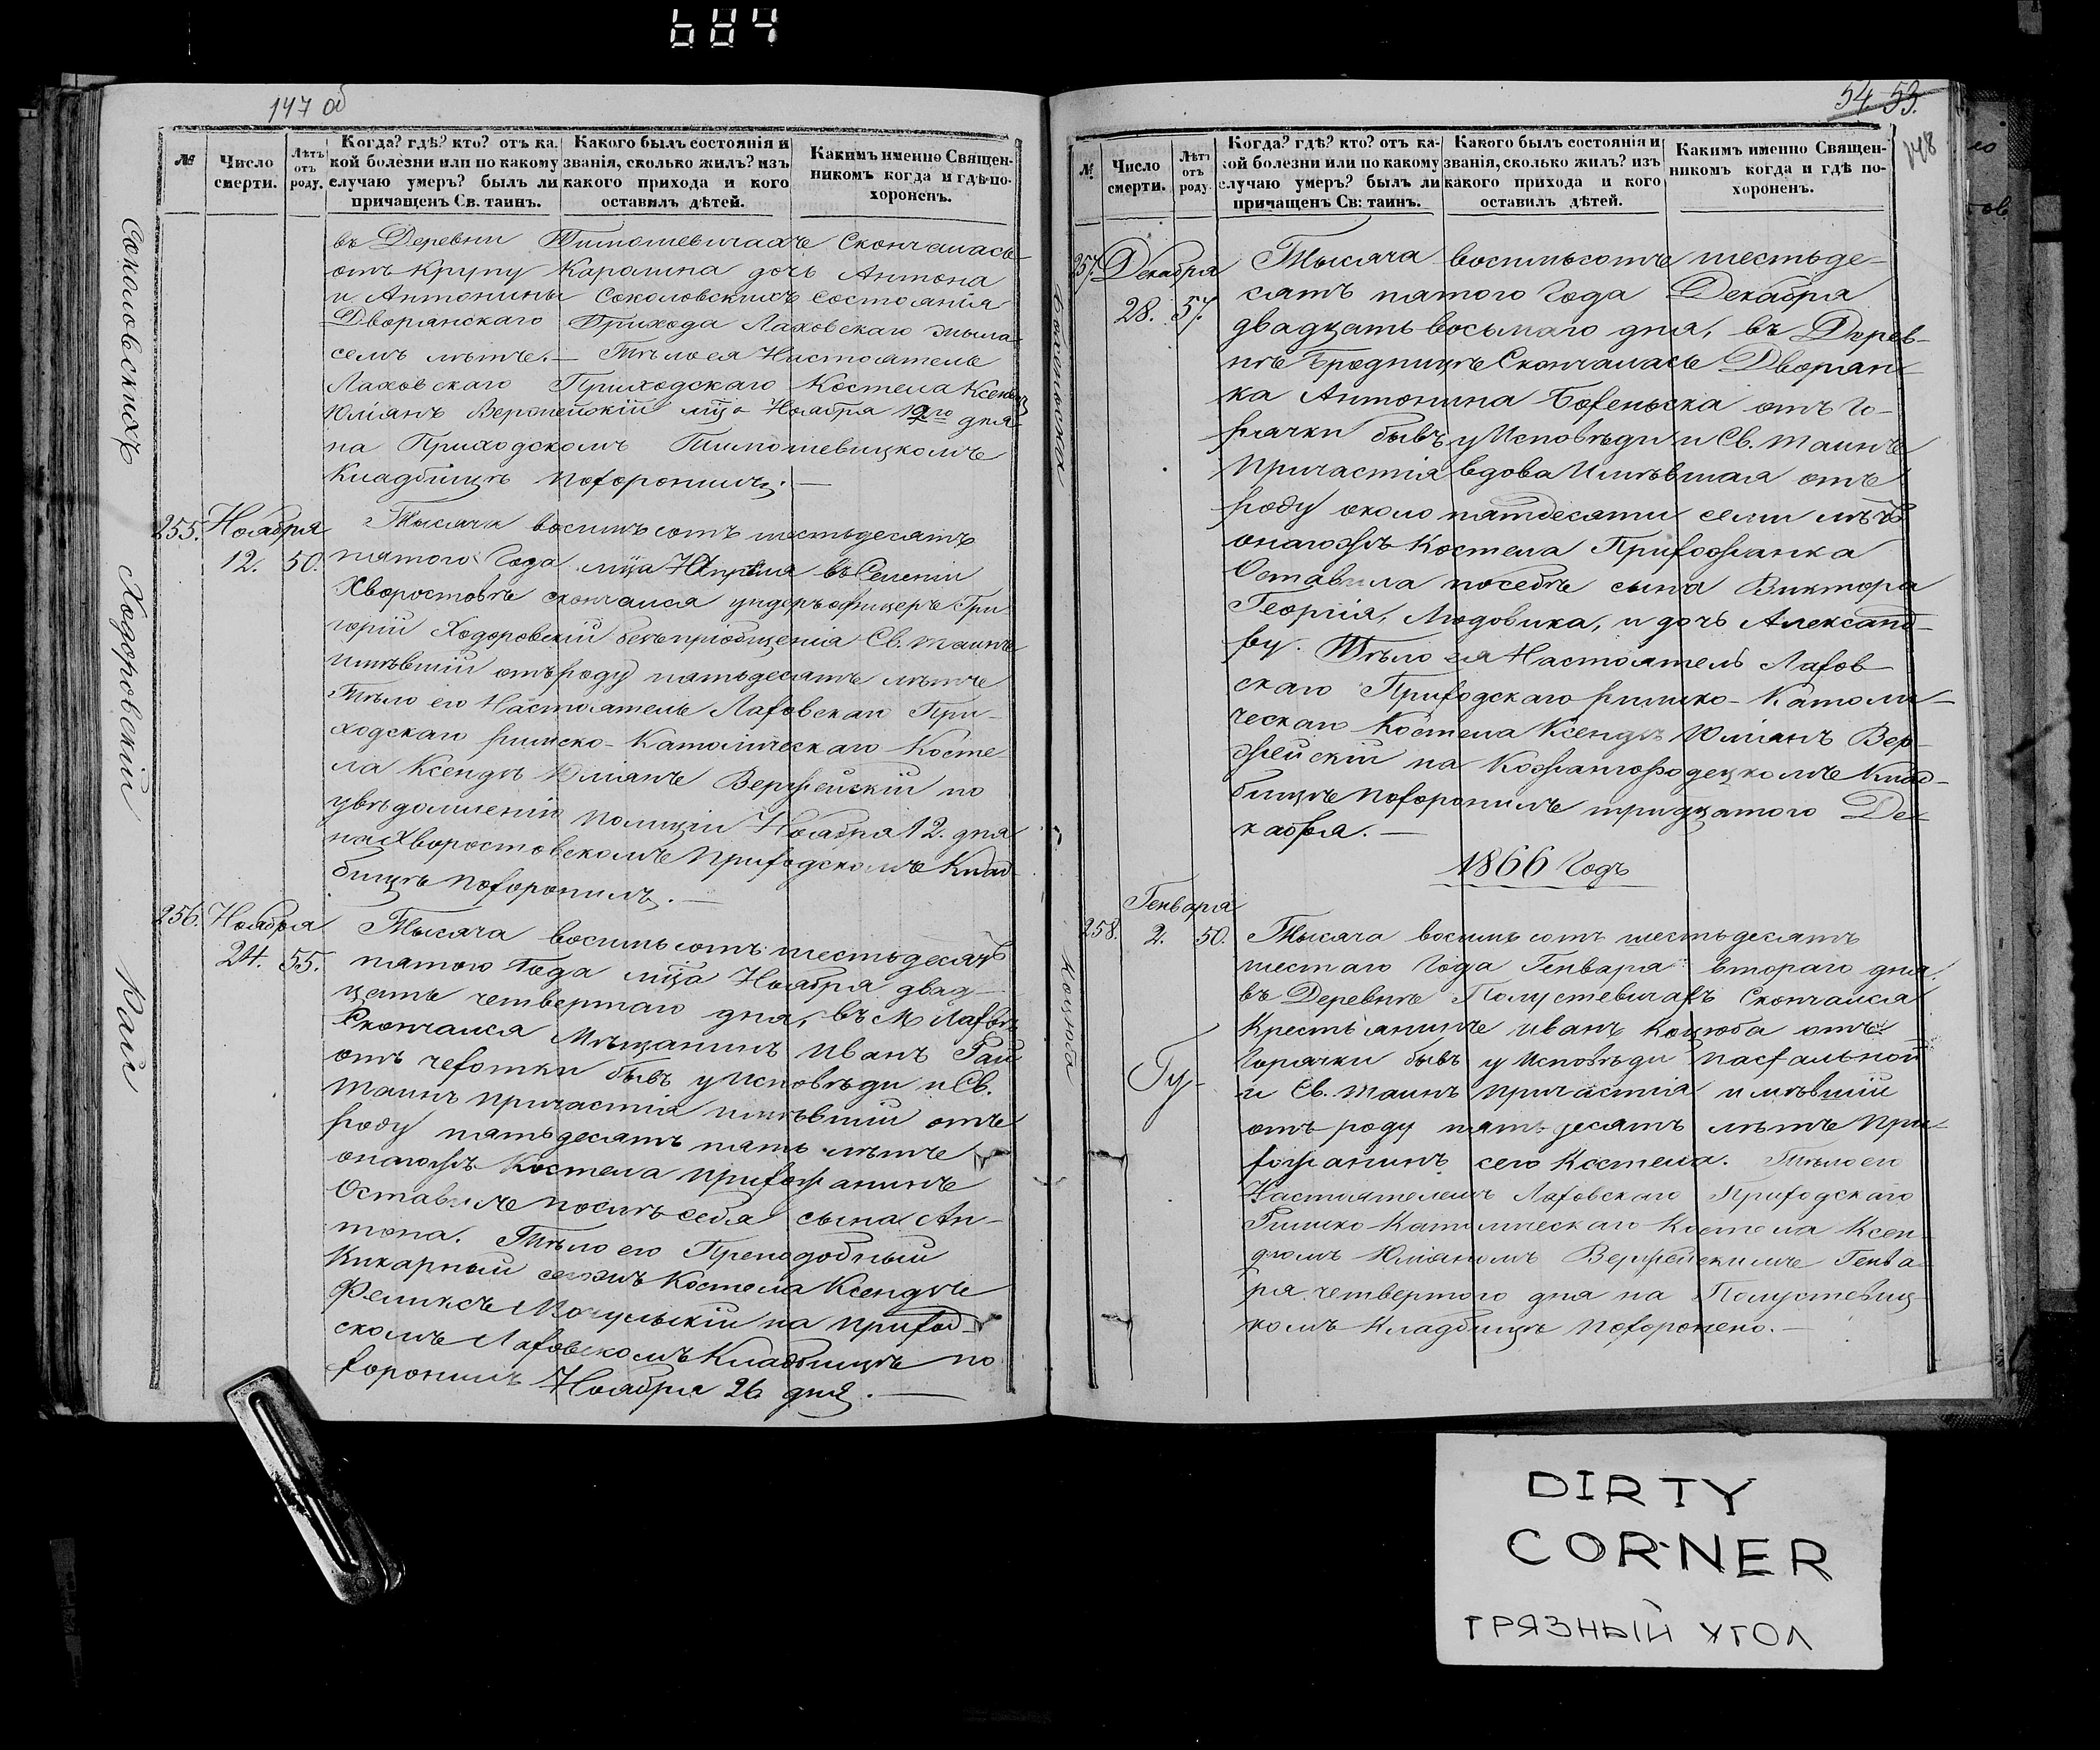 684
147 об
№
Число смерти.
Лѣтъ отъ роду.
Когда? гдѣ? кто? отъ ка-
кой болезни или по какому
случаю умеръ? былъ ли
причащенъ Св. таинъ.
Какого былъ состоянія и
званія, сколько жилъ? изъ
какого прихода и кого
оставилъ дѣтей.
Какимъ именно Священ-
никомъ когда и гдѣ по-
хороненъ.
Соколовскихъ
въ Деревни Тимошевичахъ Скончалась
отъ крупу Каролина дочь Антона
и Антонины Соколовскихъ состоянія
Дворянскаго Прихода Лаховскаго жила
семъ лѣтъ. — Тѣло ея Настоятель
Лаховскаго Приходскаго Костела Ксендзъ
Юліанъ Вержейскій мца Ноября 19го дня
на Приходскомъ Тимошевицкомъ
Кладбищѣ похоронилъ. —
Ходоровскій
255. Ноября 12. 50.
Тысяча восимъ сотъ шестьдесятъ
пятого Года мца въ Селеніи
Хворостовъ скончался ундеръ офицеръ Гри
горій Ходоровскій безъ пріобщенія Св. Таинъ
имѣвшій отъ роду пятьдесятъ лѣтъ
Тѣло его Настоятель Лаховскаго При-
ходскаго римско-Католическаго Косте-
ла Ксендзъ Юліанъ Вержейскій по
увѣдомленію полиціи Ноября 12. дня
на Хворостовскомъ приходскомъ Клад
бищѣ похоронилъ. —
Рай
256. Ноября 24. 55.
Тысяча восимь сотъ шестьдесятъ
пятого Года мца Ноября двад-
цать четвертаго дня, въ М Лаховѣ
Скончался Мѣщанинъ Иванъ Рай
отъ чехотки бывъ у Исповѣди и Св.
Таинъ причастія имѣвшій отъ
роду пятьдесятъ пять лѣтъ
онагожъ Костела прихожанинъ
Оставилъ послѣ себя сына Ан-
тона. Тѣло его Преподобный
Викарный сегожъ Костела Ксендзъ
Феликсъ на приход-
скомъ Лаховскомъ Кладбищѣ по
хоронилъ Ноября 26 дня. —
54 53.
148
№
Число смерти.
Лѣтъ отъ роду.
Когда? гдѣ? кто? отъ ка-
кой болезни или по какому
случаю умеръ? былъ ли
причащенъ Св: таинъ.
Какого былъ состоянія и
званія, сколько жилъ? изъ
какого прихода и кого
оставилъ дѣтей.
Какимъ именно Священ-
никомъ когда и гдѣ по-
хороненъ.
257. Декабря 28. 57.
Тысяча восимьсотъ шестьде-
сятъ пятого Года Декабря
двадцать восьмаго дня, въ Дерев-
нѣ Бродницѣ Скончалась Дворян-
ка Антонина отъ Го-
рячки бывъ у Исповѣди и Св. таинъ
Причастія вдова Имѣвшая отъ
роду около пятдесяти семи лѣтъ
онагожъ Костела Прихожанка
Оставила посебѣ сына Виктора
Георгія, Людовика, и дочь Александ-
ру. Тѣло ея Настоятель Лахов-
скаго Приходскаго римско-Католи-
ческаго Костела Ксендзъ Юліанъ Вер-
жейскій на Кожангородецкомъ Клад-
бищѣ похоронилъ тридцатого Де-
кабря. —
1866 Годъ
Коцюба
258. Генваря 2. 50.
Тысяча восимь сотъ шестьдесятъ
шестаго Года Генваря втораго дня
въ Деревнѣ Полустевичахъ Скончался
Крестьянинъ Иванъ Коцюба отъ
Горячки бывъ у Исповѣди пасхальной
и Св. таинъ причастія имѣвшій
отъ роду пятьдесятъ лѣтъ При-
хожанинъ сего Костела. Тѣло его
Настоятелемъ Лаховскаго Приходскаго
Римско-Католическаго Костела Ксен-
дзомъ Юліаномъ Вержейскимъ Генва-
ря четвертого дня на Полустевиц-
комъ Кладбищѣ похоронено. —
Гу-
DIRTY
CORNER
ГРЯЗНЫЙ УГОЛ